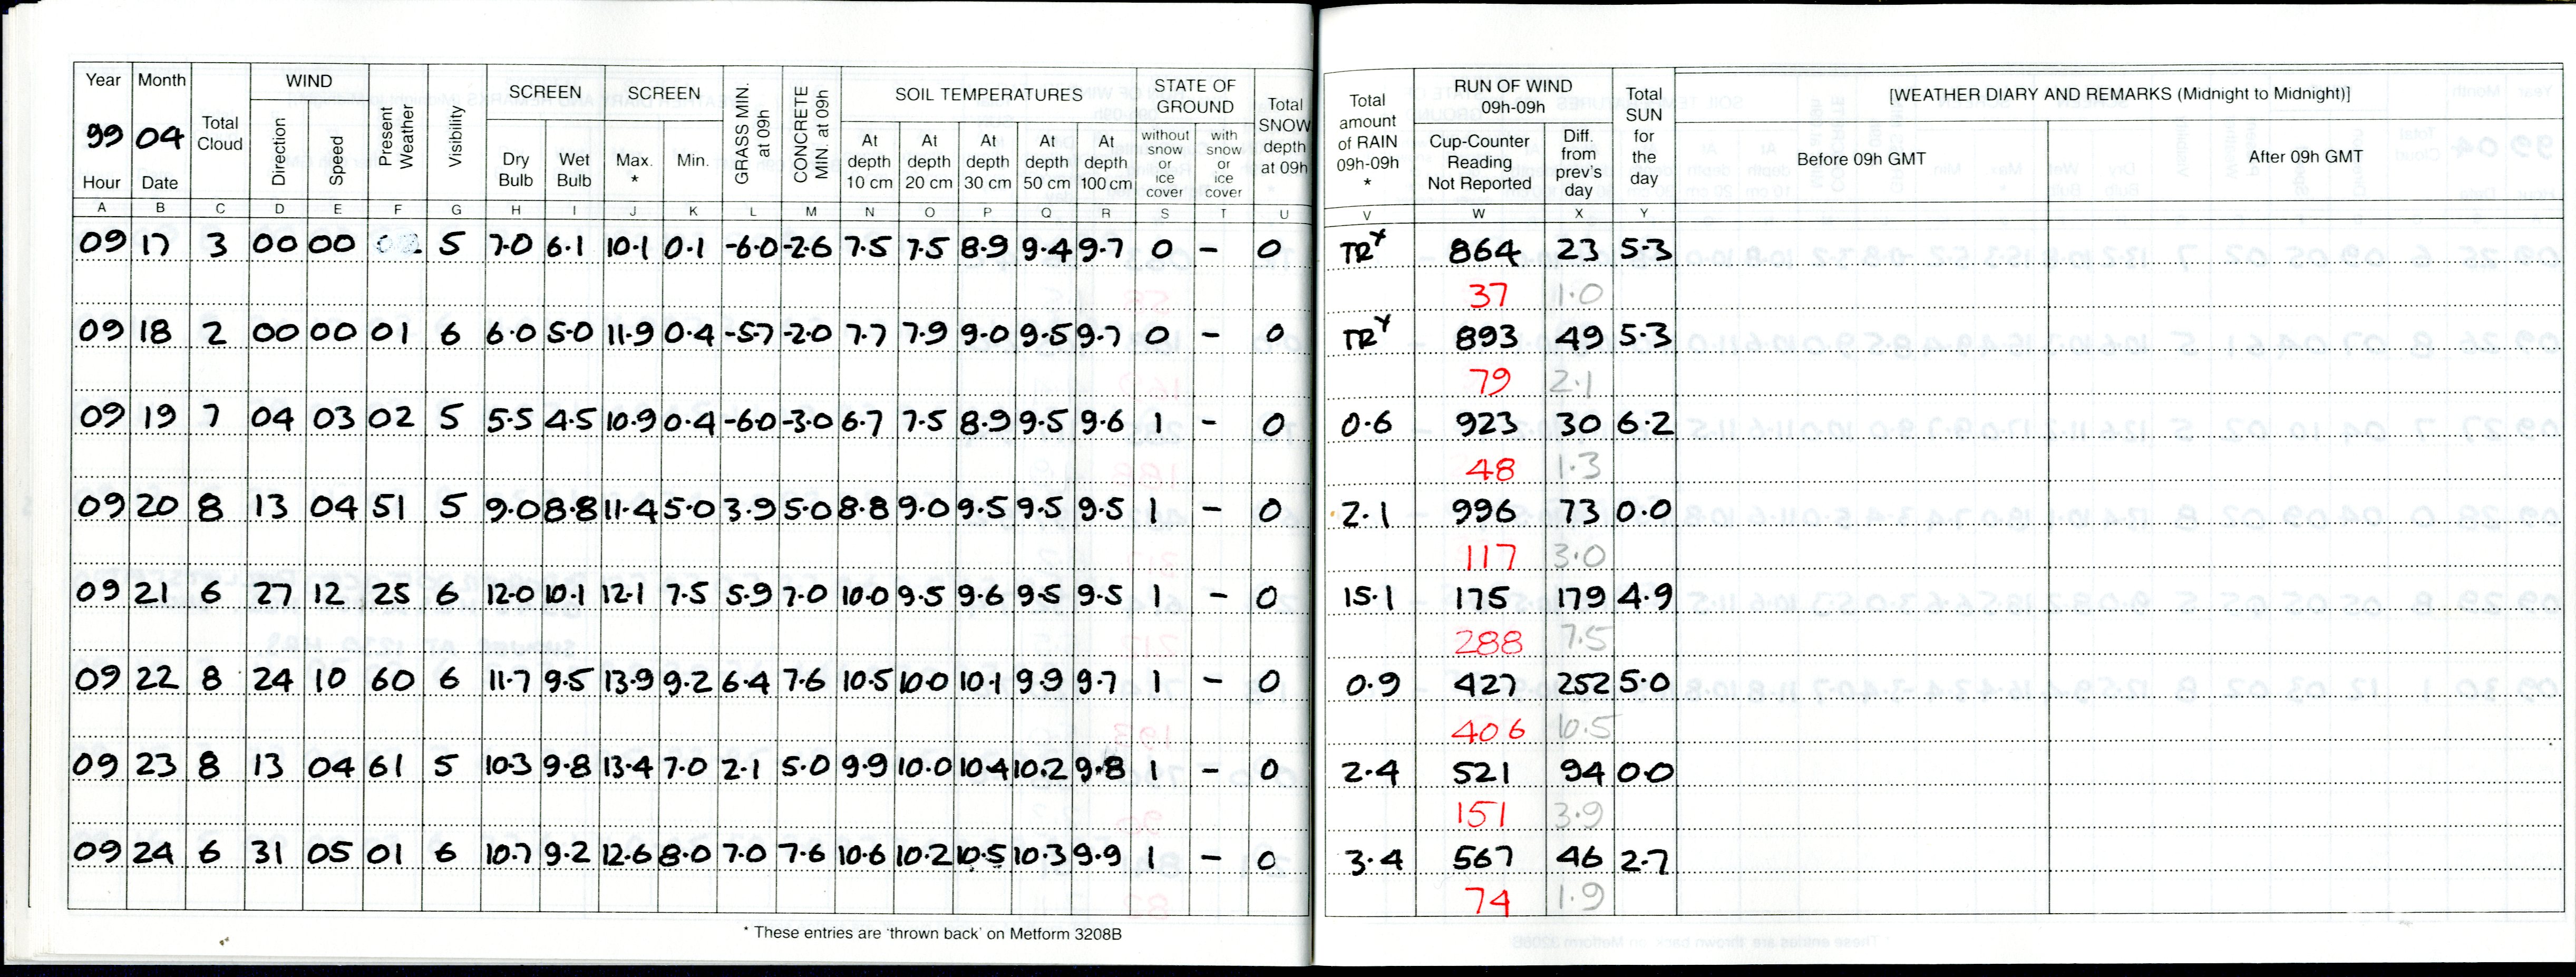 Year Month Total Cloud WIND Present Weather Visibility SCREEN SCREEN GRASS MIN. at 09h CONCRETE MIN. at 09h SOIL TEMPERATURES STATE OF GROUND Total SNOW depth at 09h Total amount of RAIN 09h-09h * RUN OF WIND 09h-09h Total SUN for the day [WEATHER DIARY AND REMARKS (Midnight to Midnight)]
99 04
Hour Date Direction Speed Dry Bulb Wet Bulb Max. * Min. At depth 10 cm At depth 20 cm At depth 30 cm At depth 50 cm At depth 100 cm without snow or ice cover with snow or ice cover Cup-Counter Reading Not Reported Diff. from prev's day Before 09h GMT After 09h GMT
A B C D E F G H I J K L M N O P Q R S T U V W X Y
09 17 3 00 00 02 5 7.0 6.1 10.1 0.1 -6.0 -2.6 7.5 7.5 8.9 9.4 9.7 0 - 0 TR 864 23 5.3
37 1.0
09 18 2 00 00 01 6 6.0 5.0 11.9 0.4 -5.7 -2.0 7.7 7.9 9.0 9.5 9.7 0 - 0 TR 893 49 5.3
79 2.1
09 19 7 04 03 02 5 5.5 4.5 10.9 0.4 -6.0 -3.0 6.7 7.5 8.9 9.5 9.6 1 - 0 0.6 923 30 6.2
48 1.3
09 20 8 13 04 51 5 9.0 8.8 11.4 5.0 3.9 5.0 8.8 9.0 9.5 9.5 9.5 1 - 0 2.1 996 73 0.0
117 3.0
09 21 6 27 12 25 6 12.0 10.1 12.1 7.5 5.9 7.0 10.0 9.5 9.6 9.5 9.5 1 - 0 15.1 175 179 4.9
288 7.5
09 22 8 24 10 60 6 11.7 9.5 13.9 9.2 6.4 7.6 10.5 10.0 10.1 9.9 9.7 1 - 0 0.9 427 252 5.0
406 10.5
09 23 8 13 04 61 5 10.3 9.8 13.4 7.0 2.1 5.0 9.9 10.0 10.4 10.2 9.8 1 - 0 2.4 521 94 0.0
151 3.9
09 24 6 31 05 01 6 10.7 9.2 12.6 8.0 7.0 7.6 10.6 10.2 10.5 10.3 9.9 1 - 0 3.4 567 46 2.7
74 1.9
* These entries are 'thrown back' on Metform 3208B